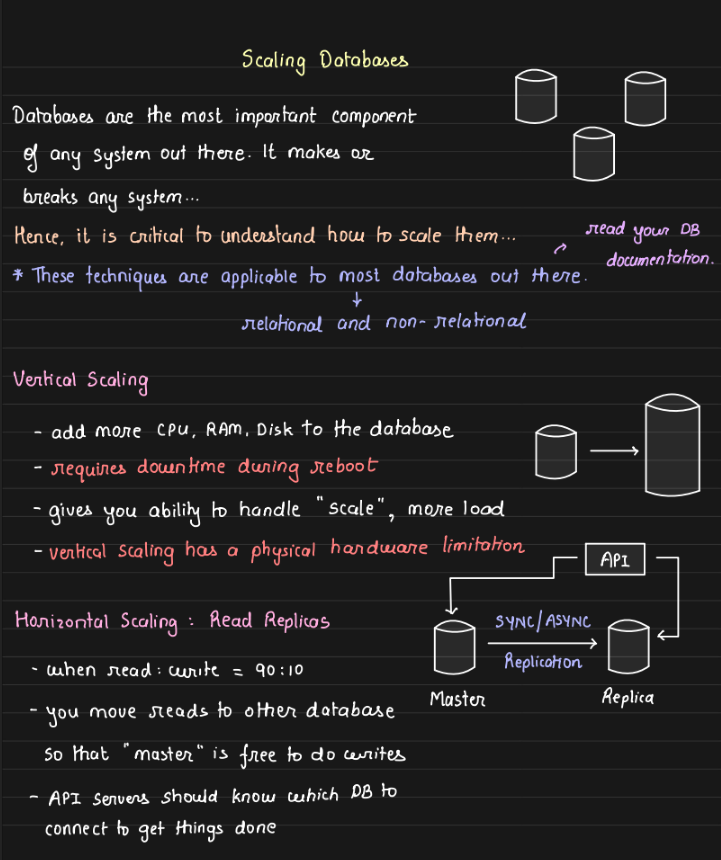 Scaling Databases
Databases are the most important component
of any system out there. It makes or
breaks any system...
Hence, it is critical to understand how to scale them...
read your DB
documentation.
* These techniques are applicable to most databases out there.
relational and non-relational
Vertical Scaling
- add more CPU, RAM, Disk to the database
- requires downtime during reboot
- gives you ability to handle "scale", more load
- vertical scaling has a physical hardware limitation
API
Horizontal Scaling : Read Replicas
SYNC/ASYNC
Replication
Master
Replica
- when read : write = 90:10
- you move reads to other database
so that "master" is free to do writes
- API servers should know which DB to
connect to get things done